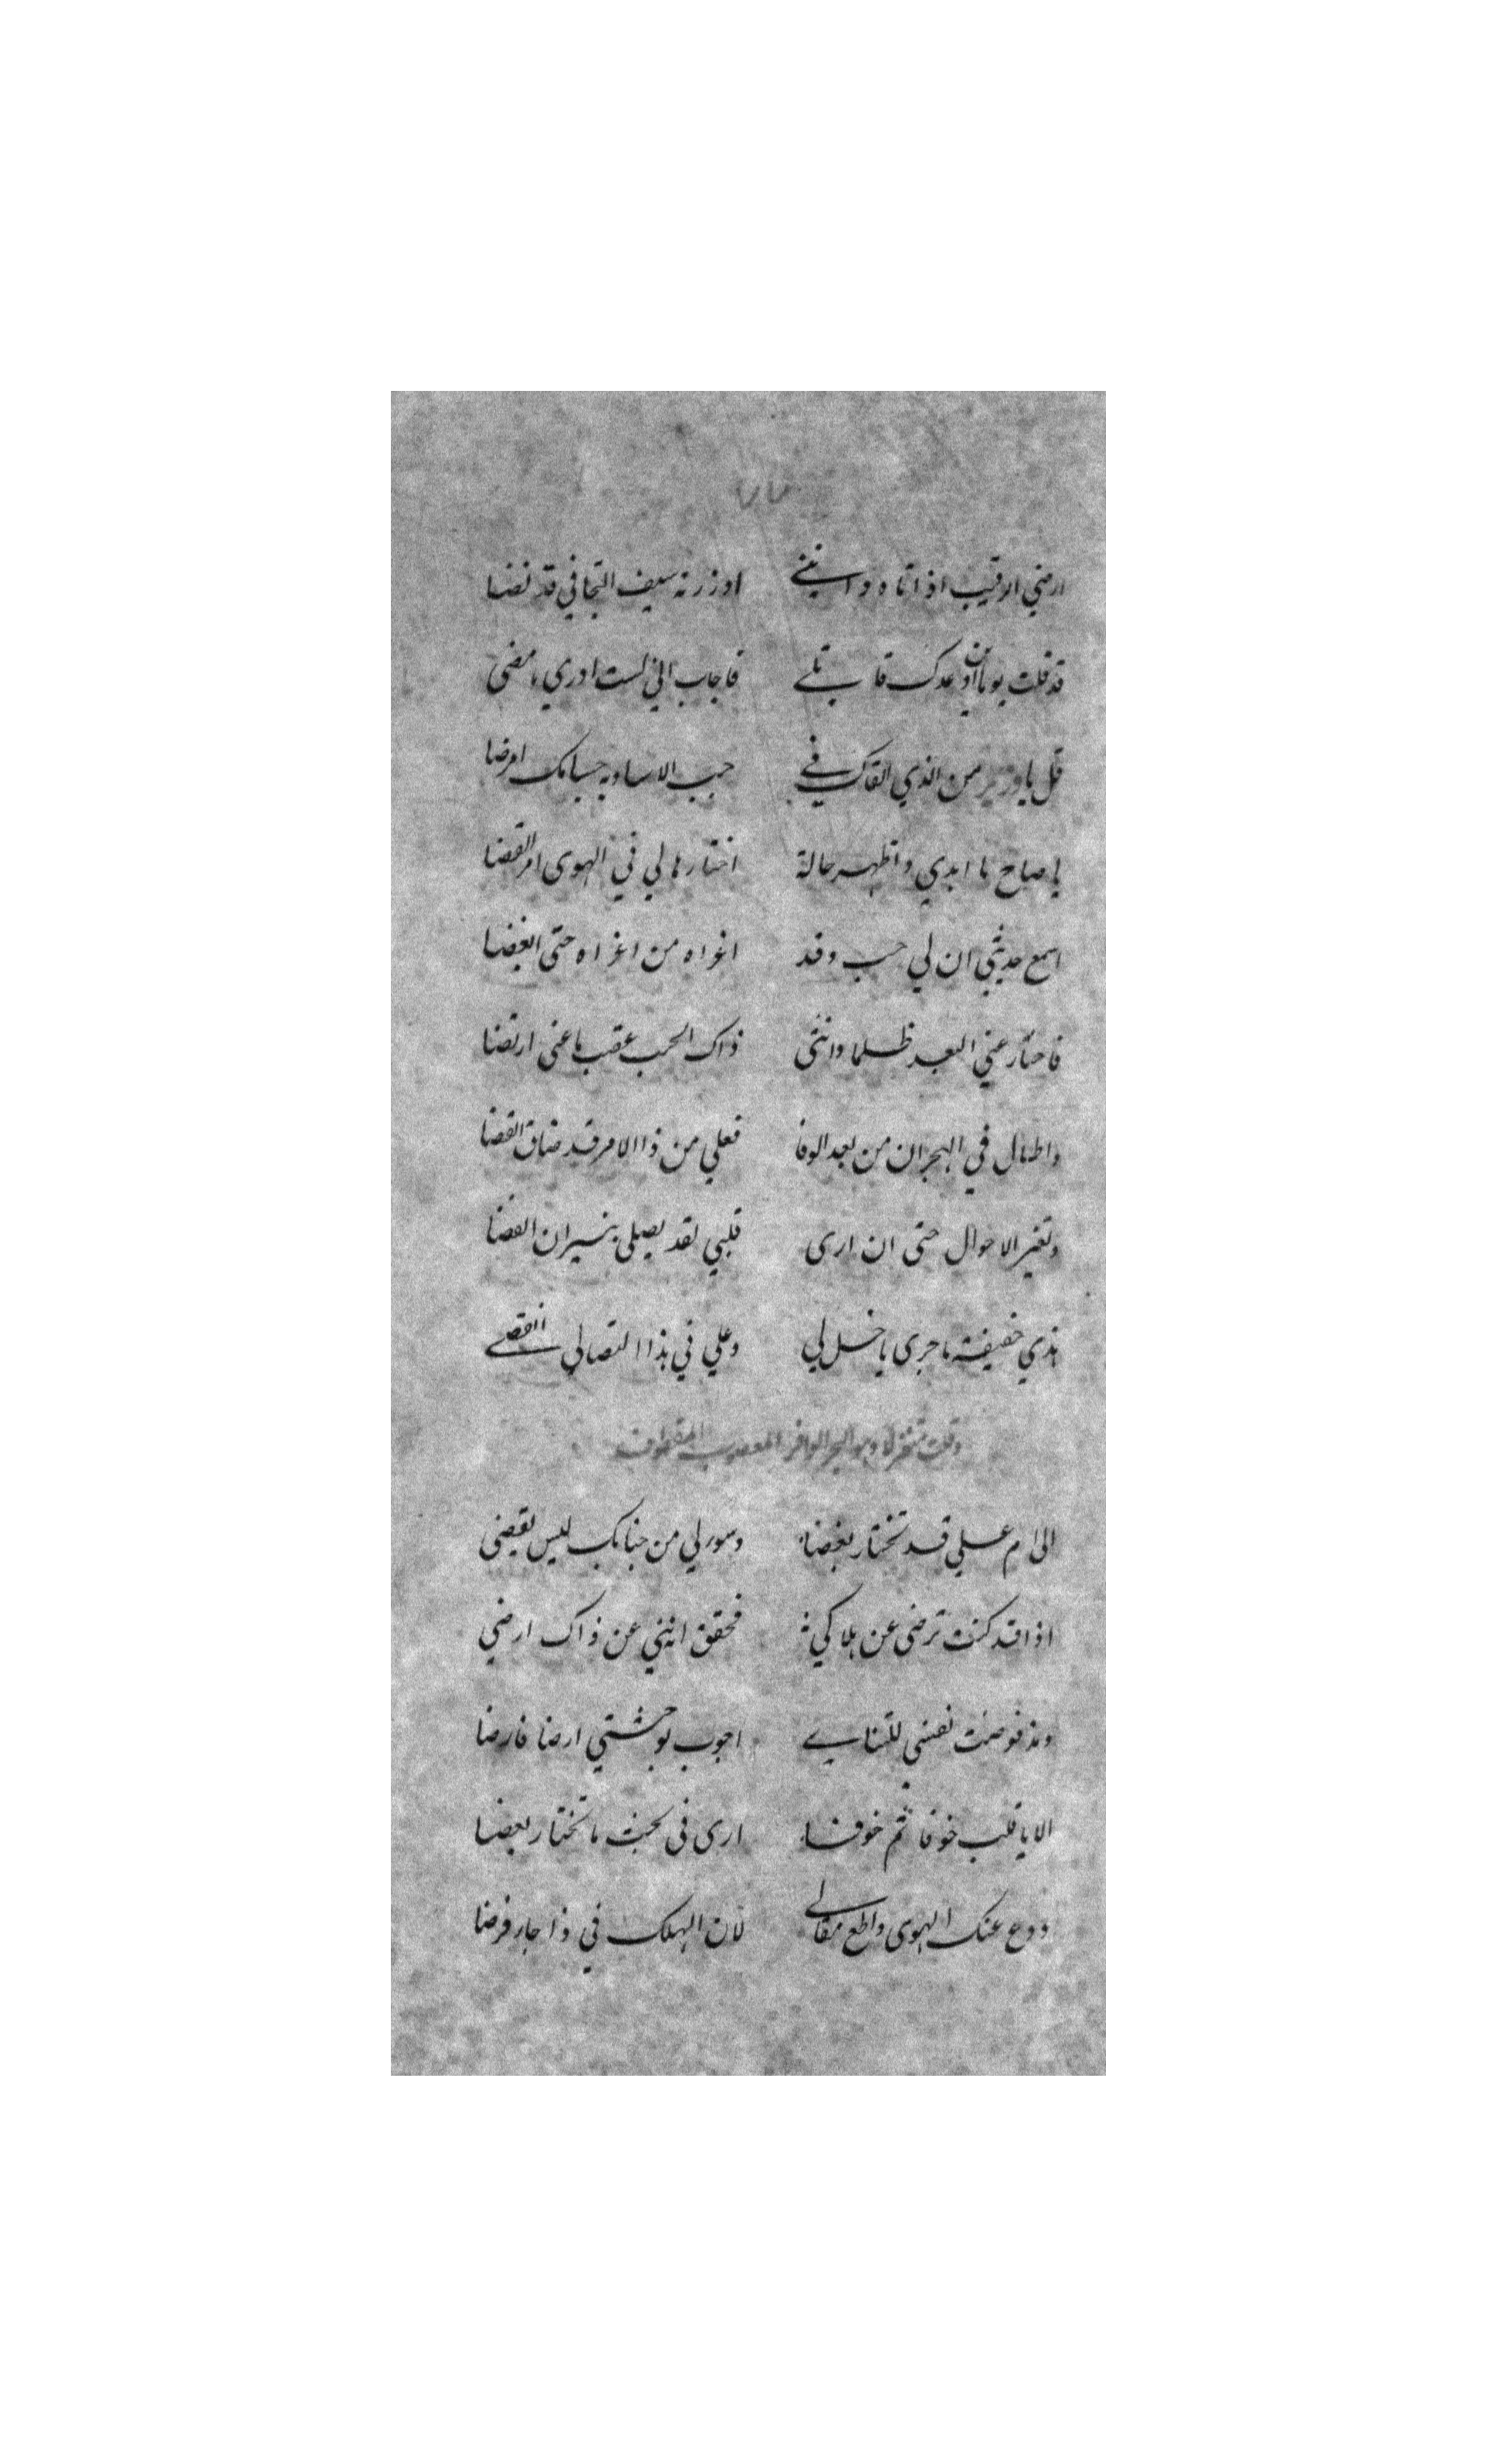 ارضي الرقيب اذا اتاه وانني او زرته سيف التجافي قد نضا
قد قلت يوما اين وعدك قاتلي فاجاب اني لست ادري ما مضى
قل يا وزير من الذي القاك في حب الاساو به حسامك امرضا
يا صاح ما ابدي واظهر حالة اختارها لي في الهوى امر القضا
اسمع حديثي ان لي حب وقد اغراه من اغراه حتى ابغضا
فاختار عني البعد ظلما وانثنى ذاك الحب عقب ما عني ارتضا
واطال في الهجران من بعد الوفا فعلي من ذا الامر قد ضاق الفضا
وتغير الاحوال حتى ان ارى قلبي لقد يصلى بنيران الغضا
هذي حقيقة ما جرى يا خل لي وعلي في هذا التصالي انقضى
وقلت متغزلا وهو البحر الوافر المعصوب المقطوف
الى ام علي قد تختار بغضا وسولي من جنابك ليس يقضى
اذا قد كنت ترضى عن هلاكي فحقق انني عن ذاك ارضي
ومذ فوضت نفسي للتنايي اجوب لوحشتي ارضا فارضا
الا يا قلب خوفا ثم خوفا ارى في بحث ما تختار بعضا
ودع عنك الهوى واطع مقالي لان الهلك في ذا جار فرضا